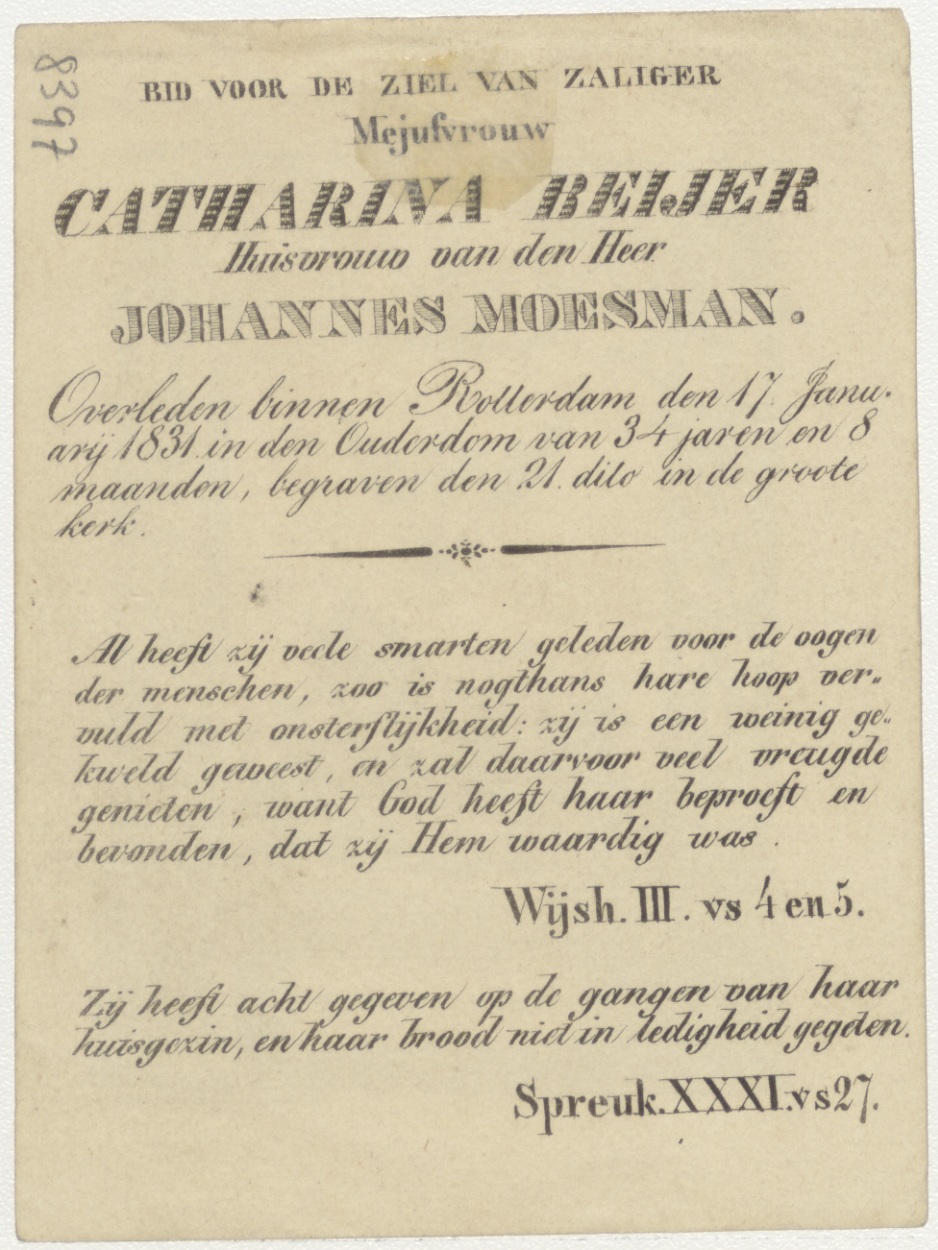 8397
BID VOOR DE ZIEL VAN ZALIGER
Mejufvrouw
CATHARINA BEIJER
Huisvrouw van den Heer
JOHANNES MOESMAN.
Overleden binnen Rotterdam den 17. Janu-
arij 1831. in den Ouderdom van 34 jaren en 8
maanden, begraven den 21. dito in de groote
kerk.
Al heeft zij veele smarten geleden voor de oogen
der menschen, zoo is nogthans hare hoop ver„
vuld met onsterflijkheid: zij is een weinig ge„
kweld geweest, en zal daarvoor veel vreugde
genieten, want God heeft haar beproeft en
bevonden, dat zij Hem waardig was.
Wijsh. III. vs 4 en 5.
Zij heeft acht gegeven op de gangen van haar
huisgezin, en haar brood niet in ledigheid gegeten.
Spreuk. XXXI. vs 27.